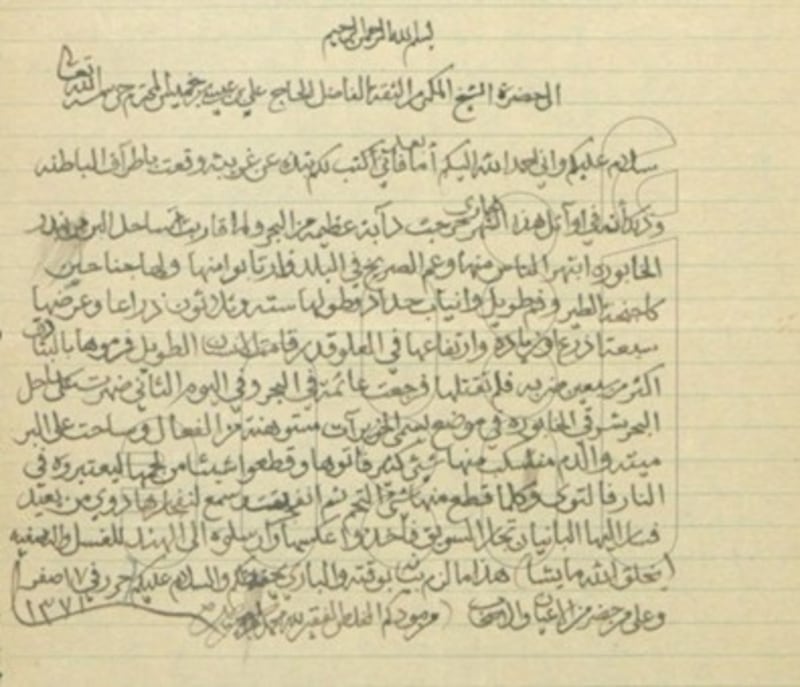 بسم الله الرحمن الرحيم
الى حضرة الشيخ المكرم الثقة الفاضل الحاج علي بن عيسى بن خميس المحترم حرسه الله تعالى
سلام عليكم واني احمد الله اليكم أما بعد فاني أكتب لكم نبذة عن غريبة وقعت باطراف الباطنه
وذلك أنه في اوائل هذا الشهر الجاري خرجت دآبة عظيمه من البحر ولما قاربت لساحل البر من بندر
الخابوره ابتهر الناس منها وعم الصريخ في البلد وارتابوا منها ولها جناحين
كاجنحة الطير وفم طويل وانياب حداد وطولها سته وثلاثون ذراعا وعرضها
سبعة اذرع وزيادة وارتفاعها في العلو قدر قامة الطويل فرموها بالبنادق
اكثر من سبعين ضربه فلم تقتلها فرجعت عائمة في البحر وفي اليوم الثاني ظهرت على ساحل
البحر شرقي الخابوره في موضع يسمى الخزيرآت مستوهنة من الفعال وساحت على البر
ميتة والدم منسكب منها شيئ كثير فاتوها وقطعوا شيئا من لحمها ليعتبروه في
النار فالتوى وكلما قطع منها شئ التحم ثم انفجرت وسمع لنفجارها دوي من بعيد
فنزل اليها البانيان تجار السويق فأخذوا عكسها وارسلوه الى الهند
(يخلق الله ما يشا) هذا ما لزم بوقته والباري يحفظكم والسلام عليكم حرر في ١٧ صفر
وعلى من حضر من الاعيان والاصحاب ومن ودكم المخلص الفقير لله محمد
١٣٧١